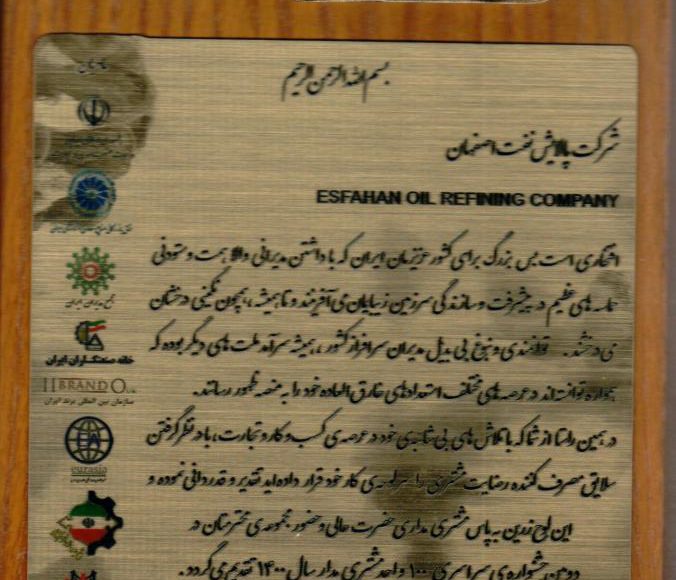 بسم الله الرحمن الرحیم
شرکت پالایش نفت اصفهان
ESFAHAN OIL REFINING COMPANY
افتخاری است بس بزرگ برای کشور عزیزمان ایران که با داشتن مدیرانی والا همت و ستودنی
نامه های عظیم در پیشرفت و سازندگی سرزمین زیبایمان می آفرینند و تا همیشه، همچون نگینی درخشان
می درخشند. توانمندی و نبوغ بی بدیل مدیران سرافراز کشور، همیشه سرآمد ملت های دیگر بوده که
همواره توانسته اند در عرصه های مختلف استعدادهای خارق العاده خود را به منصه ظهور رسانند.
در همین راستا از شما که با تلاش های بی شائبه ی خود در عرصه ی کسب و کار و تجارت، با در نظر گرفتن
سلایق مصرف کننده رضایت مشتری را سرلوحه ی کار خود قرار داده اید تقدیر و قدردانی نموده و
این لوح زرین به پاس مشتری مداری حضرت عالی و حضور مجموعه ی محترمتان در
دومین جشنواره ی سراسری ۱۰۰ واحد مشتری مدار سال ۱۴۰۰ تقدیم می گردد.
خانه صنعتگران ایران
IIBRANDO
سازمان بین المللی برند ایران
EA
eurasia